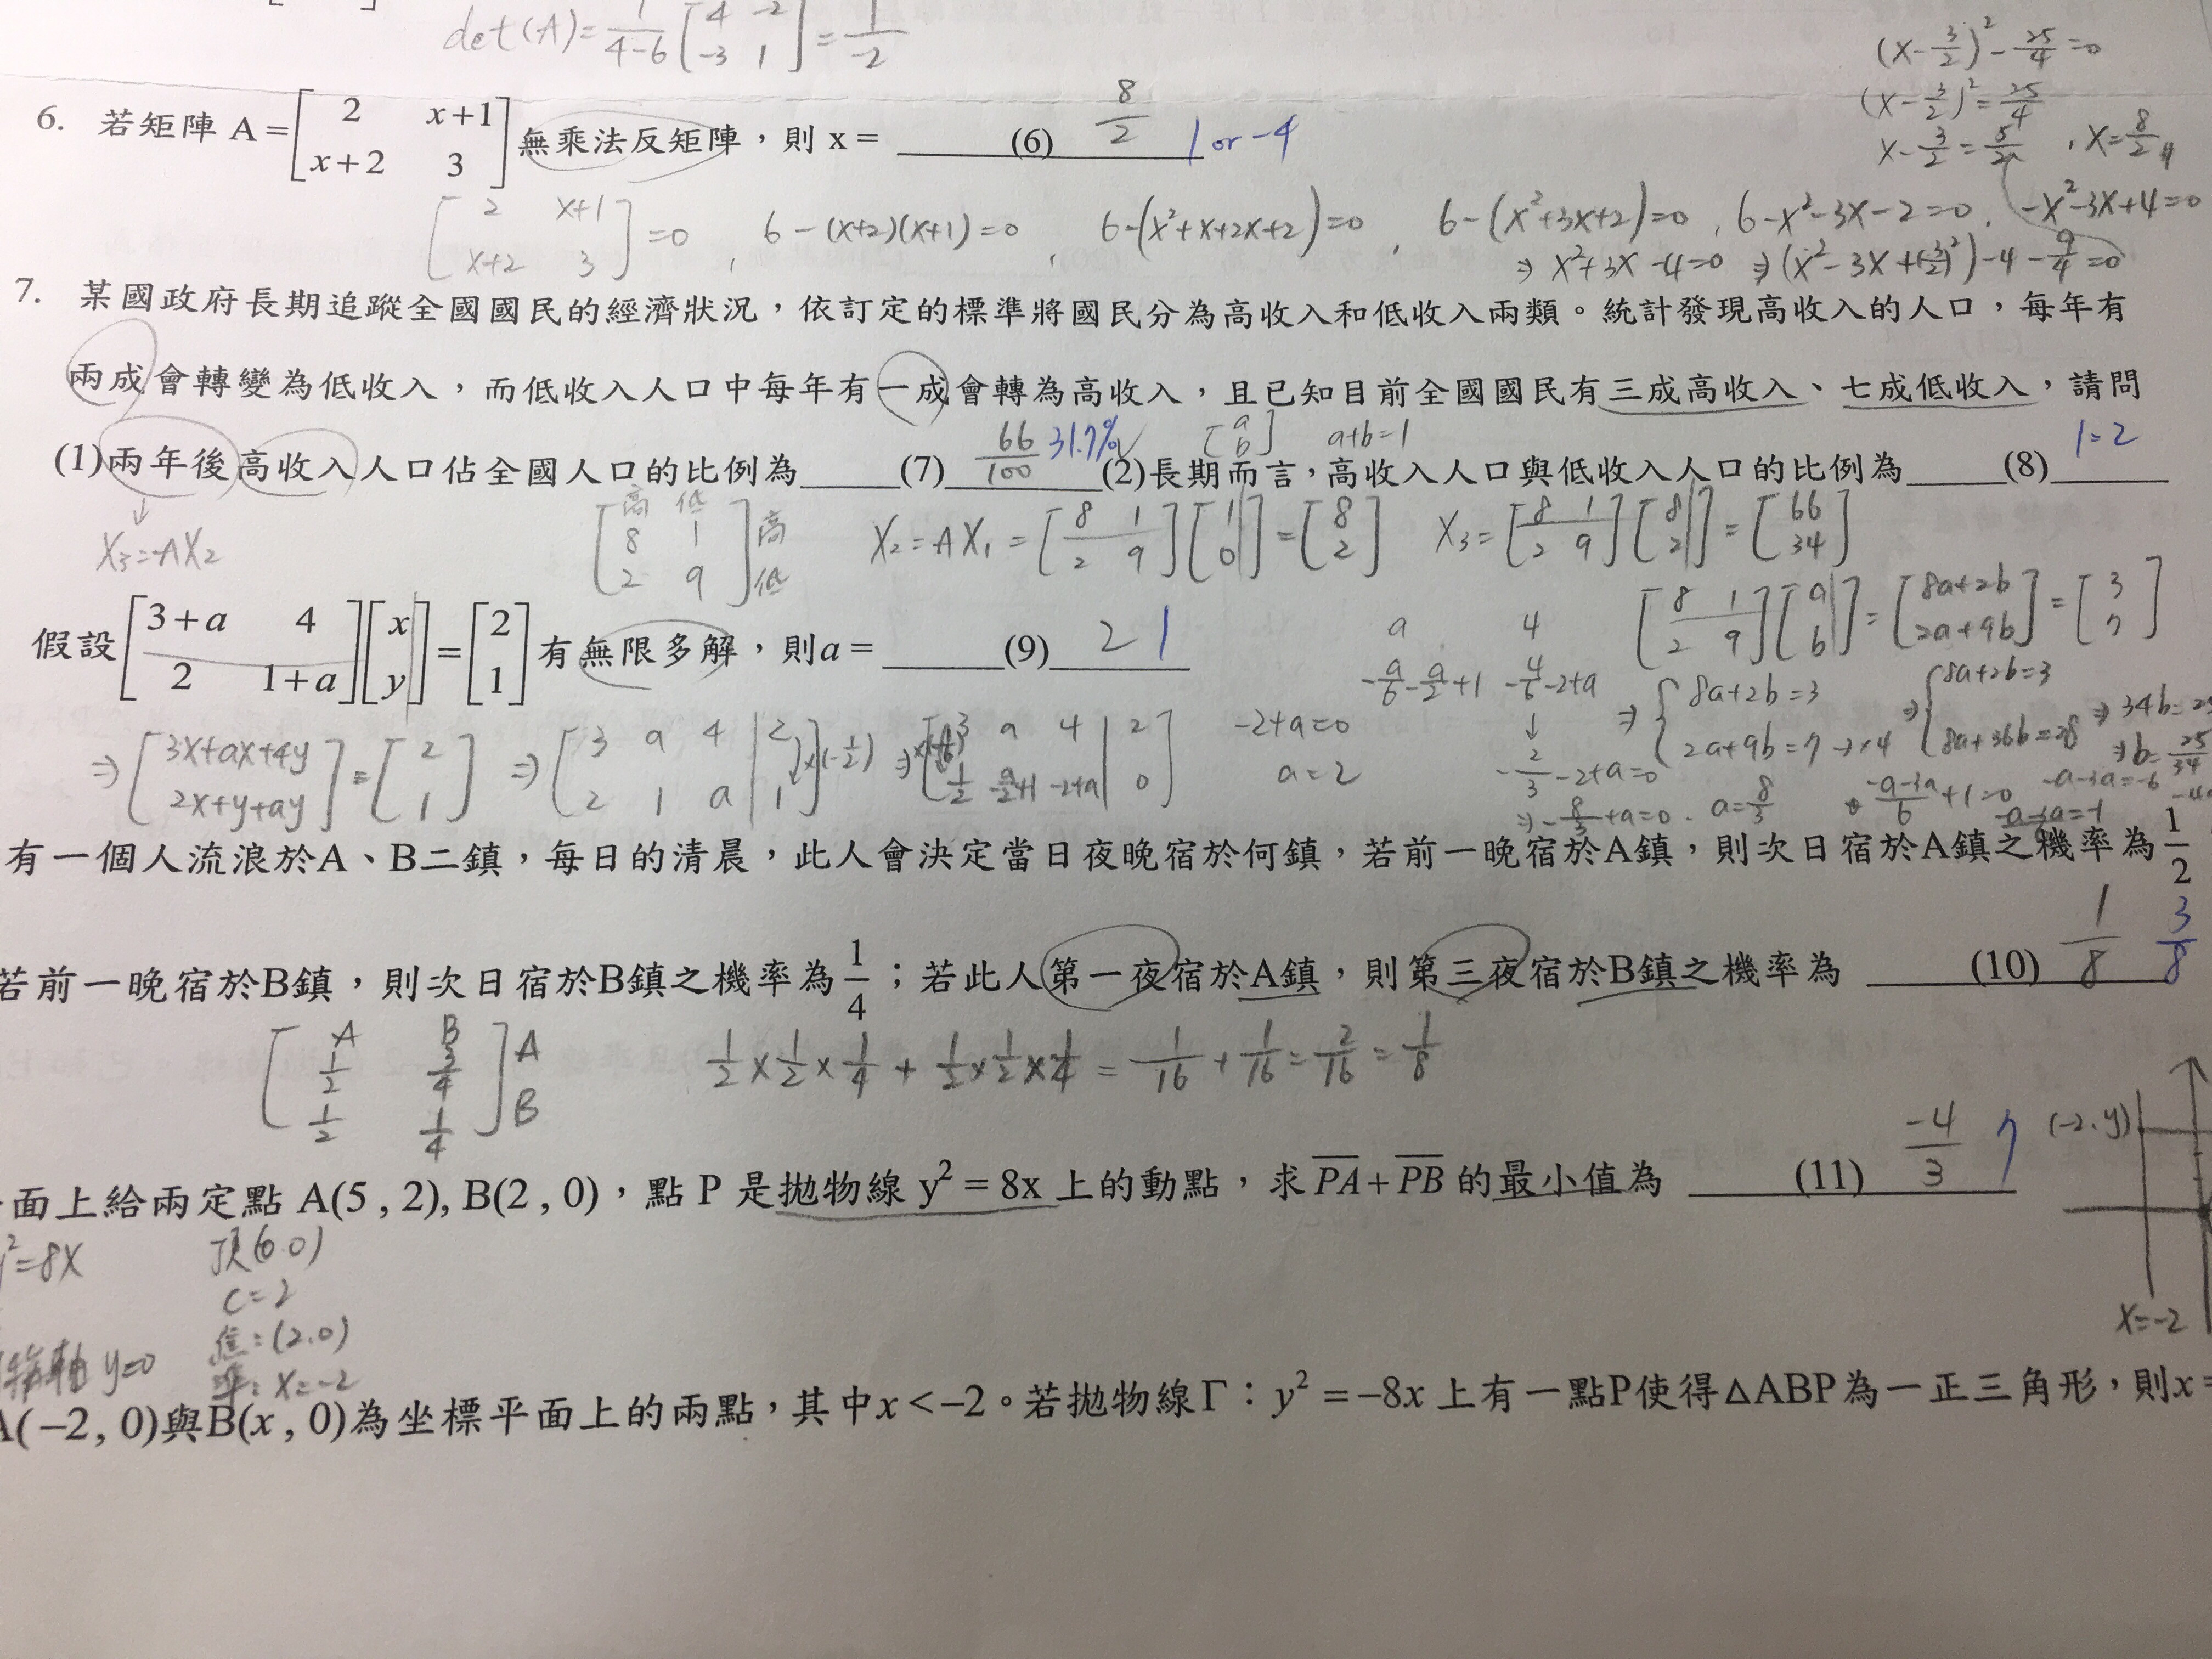 det(A)= 1/(4-6) [4 -2; -3 1] = 1/-2
(x-3/2)²-25/4=0
(x-3/2)²=25/4
x-3/2=5/2, x=8/2
6. 若矩陣 A=[2 x+1; x+2 3] 無乘法反矩陣，則 x = (6) 8/2 1 or -4
[2 x+1; x+2 3]=0, 6-(x+2)(x+1)=0, 6-(x²+x+2x+2)=0, 6-(x²+3x+2)=0, 6-x²-3x-2=0, -x²-3x+4=0
⇒ x²+3x-4=0 ⇒ (x²-3x+(3/2)²)-4-9/4=0
7. 某國政府長期追蹤全國國民的經濟狀況，依訂定的標準將國民分為高收入和低收入兩類。統計發現高收入的人口，每年有
兩成會轉變為低收入，而低收入人口中每年有一成會轉為高收入，且已知目前全國國民有三成高收入、七成低收入，請問
[a; b] a+b=1
(1)兩年後高收入人口佔全國人口的比例為 (7) 66/100 31.7% (2)長期而言，高收入人口與低收入人口的比例為 (8) 1=2
X₃=AX₂
高 低
[8 1; 2 9] 高 低 X₂=AX₁=[8 1; 2 9][1; 0]=[8; 2] X₃=[8 1; 2 9][8; 2]=[66; 34]
[8 1; 2 9][a; b]=[8a+2b; 2a+9b]=[3; 7]
假設[3+a 4; 2 1+a][x; y]=[2; 1]有無限多解，則a= (9) 2 1
a 4
-a/6-a/2+1 -4/6-2+a
⇒ {8a+2b=3 2a+9b=7→×4 ⇒ {8a+2b=3 8a+36b=28 ⇒ 34b=25
⇒b=25/34
⇒ [3x+ax+4y; 2x+y+ay]=[2; 1] ⇒ [3 a 4 | 2; 2 1 a | 1]×(-1/2) ⇒ [3 a 4 | 2; 1/2 -a/2+1 -2+a | 0] -2+a=0
a=2
↓
-2/3-2+a=0
⇒ -8/3+a=0. a=8/3
-a-3a/6+1=0 -a-3a=-6
有一個人流浪於A、B二鎮，每日的清晨，此人會決定當日夜晚宿於何鎮，若前一晚宿於A鎮，則次日宿於A鎮之機率為1/2
若前一晚宿於B鎮，則次日宿於B鎮之機率為1/4；若此人第一夜宿於A鎮，則第三夜宿於B鎮之機率為 (10) 1/8 3/8
A B
[1/2 3/4; 1/2 1/4] A B 1/2×1/2×1/4+1/2×1/2×1/4=1/16+1/16=2/16=1/8
面上給兩定點 A(5 , 2), B(2 , 0)，點 P 是拋物線 y² = 8x 上的動點，求 PA+PB 的最小值為 (11) -4/3 7
(-2.y)
x=-2
²=8x 頂(0.0)
c=2
焦:(2.0)
軸 y=0 準: x=-2
A(−2 , 0)與B(x , 0)為坐標平面上的兩點，其中x < −2。若拋物線Γ：y² = −8x 上有一點P使得△ABP為一正三角形，則x =